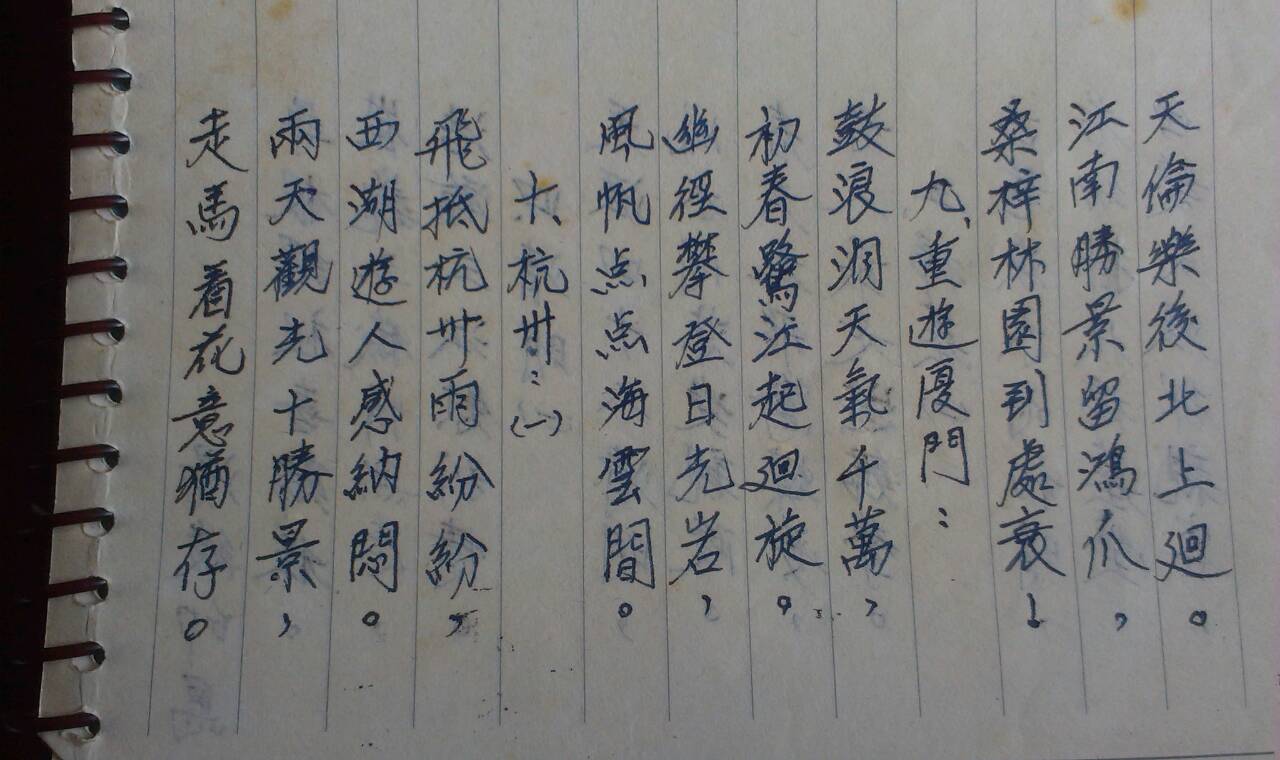 天倫樂後北上迴。
江南勝景留鴻爪，
桑梓林園到處衰！
九、重遊廈門：
鼓浪洞天氣千萬，
初春鷺江起迴旋。
幽徑攀登日光岩，
風帆点点海雲間。
十、杭州：(一)
飛抵杭州雨紛紛，
西湖遊人感納悶。
雨天觀光十勝景，
走馬看花意猶存。